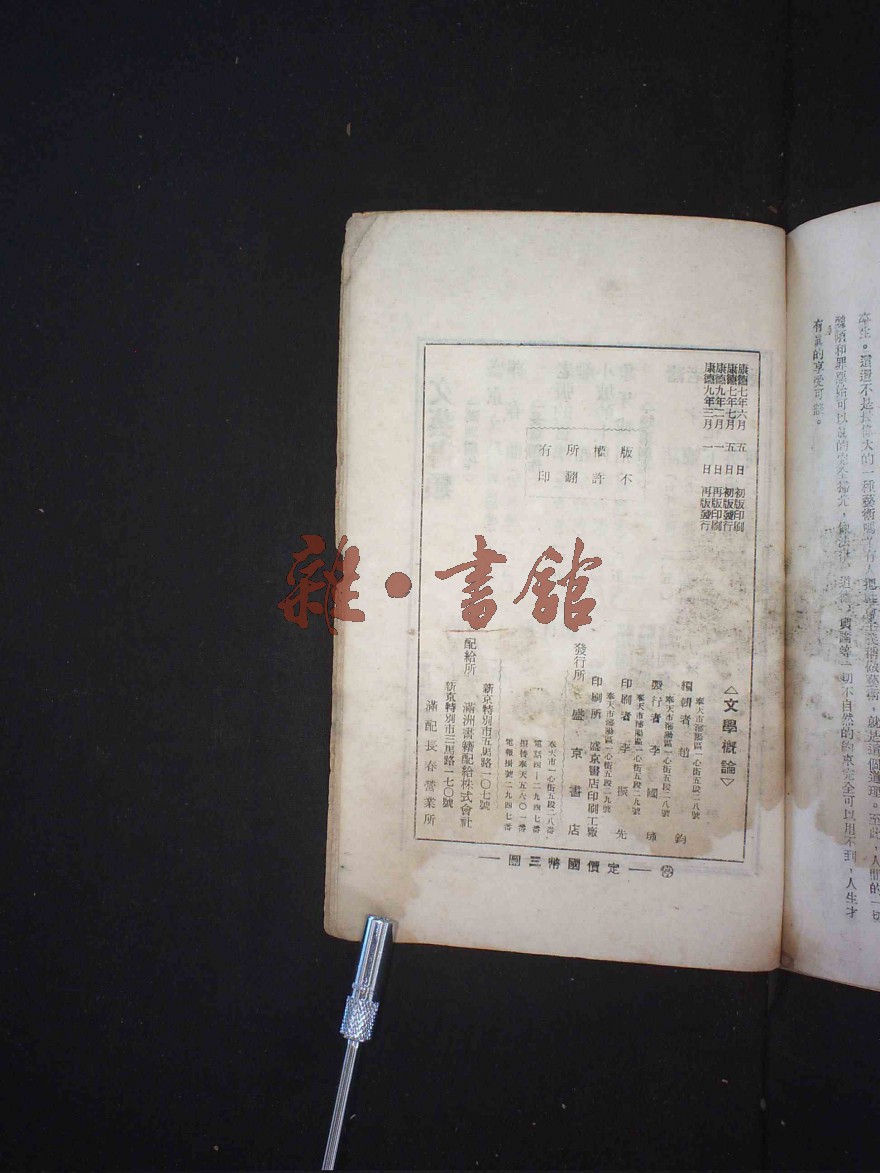 卒生。這還不是投偉大的一種藝術嗎？有人把無治主義稱做藝術，就是這個道理。至此，人間的一切
醜陋和罪惡始可以說的完全掃光，像法律，道德，輿論等一切不自然的約束完全可以用不到，人生才
有眞的享受可說。
康德七年六月 五 日 初版印刷
康德七年七月 五 日 初版發行
康德九年二月 一 日 再版印刷
康德九年三月 一 日 再版發行
版權所有
不許翻印
△文學概論▽
奉天市瀋陽區一心街五段二八號
編輯者 趙 鈞
奉天市瀋陽區一心街五段二八號
發行者 李 國
奉天市瀋陽區一心街五段二九號
印刷者 李 振 先
奉天市瀋陽區一心街五段二九號
印刷所 盛京書店印刷工廠
發行所 盛京書店
奉天市一心街五段二八番
電話四—二九四七番
振替奉天五六〇一番
電報掛號二九四七番
配給所
新京特別市五馬路一〇七號
滿洲書籍配給株式會社
新京特別市三馬路一七〇號
滿配長春營業所
—定價國幣三圓—
雜·書館